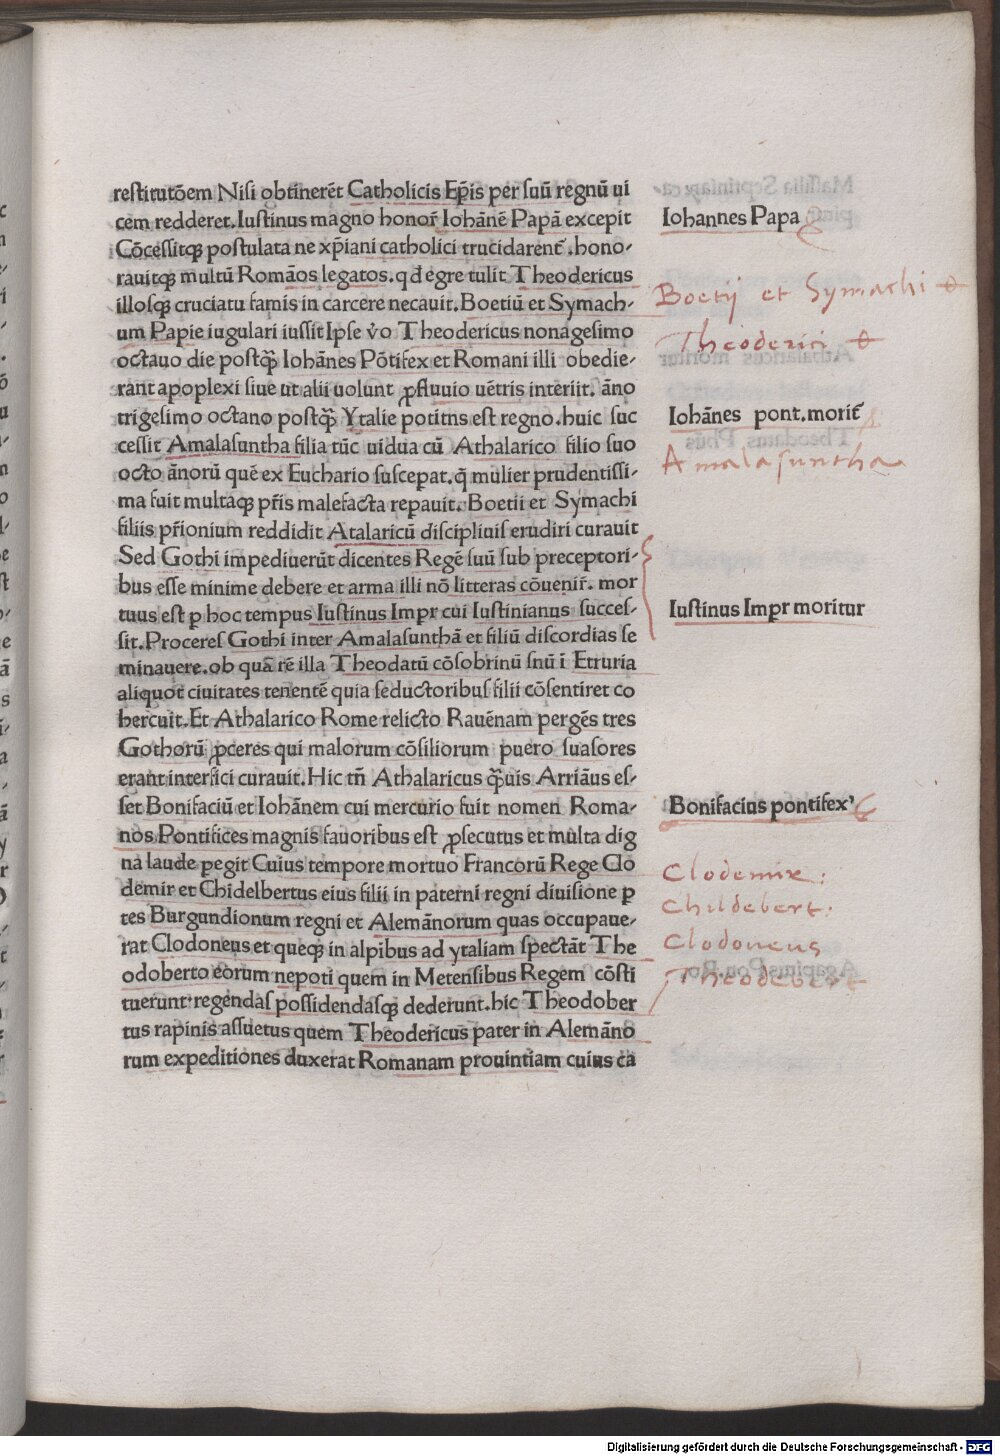 restitutōem Nisi obtinerēt Catholicis Ep̄is per suū regnū ui
cem redderet. Iustinus magno honor̄ Iohānē Papā excepit
Cōcessitqꝫ postulata ne xp̄iani catholici trucidarent̄ .hono-
rauitqꝫ multū Romāos legatos. qd̄ egre tulit Theodericus
illosqꝫ cruciatu famis in carcere necauit. Boetiū et Symach-
um Papie iugulari iussit Ipse v̄o Theodericus nonagesimo
octauo die postq̄ꝫ Iohānes Pōtifex et Romani illi obedie-
rant apoplexi siue ut alii uolunt ꝓfluuio uētris interiit. āno
trigesimo octano postq̄ꝫ Ytalie potitns est regno. huic suc
cessit Amalasuntha filia tūc uidua cū Athalarico filio suo
octo ānorū quē ex Euchario suscepat. q̄ mulier prudentissi-
ma fuit multaqꝫ pr̄is malefacta repauit. Boetii et Symachi
filiis pr̄ionium reddidit Atalaricū disciplinis erudiri curauit
Sed Gothi impediuerūt dicentes Regē suū sub preceptori-
bus esse minime debere et arma illi nō litteras cōuenir̄. mor
tuus est p hoc tempus Iustinus Impr cui Iustinianus succes-
sit. Proceres Gothi inter Amalasunthā et filiū discordias se
minauere. ob quā rē illa Theodatū cōsobrinū snū ī Etruria
aliquot ciuitates tenentē quia seductoribus filii cōsentiret co
hercuit. Et Athalarico Rome relicto Rauēnam pergēs tres
Gothorū ꝓceres qui malorum cōsiliorum puero suasores
erant intersici curauit. Hic tn̄ Athalaricus q̄ꝫuis Arriāus es-
set Bonifaciū et Iohānem cui mercurio fuit nomen Roma-
nos Pontifices magnis fauoribus est ꝓsecutus et multa dig
na laude pegit Cuius tempore mortuo Francorū Rege Clo
demir et Chidelbertus eius filii in paterni regni diuisione ꝑ
tes Burgundionum regni et Alemānorum quas occupaue-
rat Clodoneus et queqꝫ in alpibus ad ytaliam spectāt The
odoberto eorum nepoti quem in Metensibus Regem cōsti
tuerunt regendas possidendasqꝫ dederunt. hic Theodober
tus rapinis assuetus quem Theodericus pater in Alemāno
rum expeditiones duxerat Romanam prouintiam cuius ca
Iohannes Papa
Boetij et Symachi
Theoderici
Iohānes pont. morit̄
Amalasuntha
Iustinus Impr moritur
Bonifacius pontifex
Clodemir:
Childebert:
Clodoneus
Theodebert
Digitalisierung gefördert durch die Deutsche Forschungsgemeinschaft - DFG